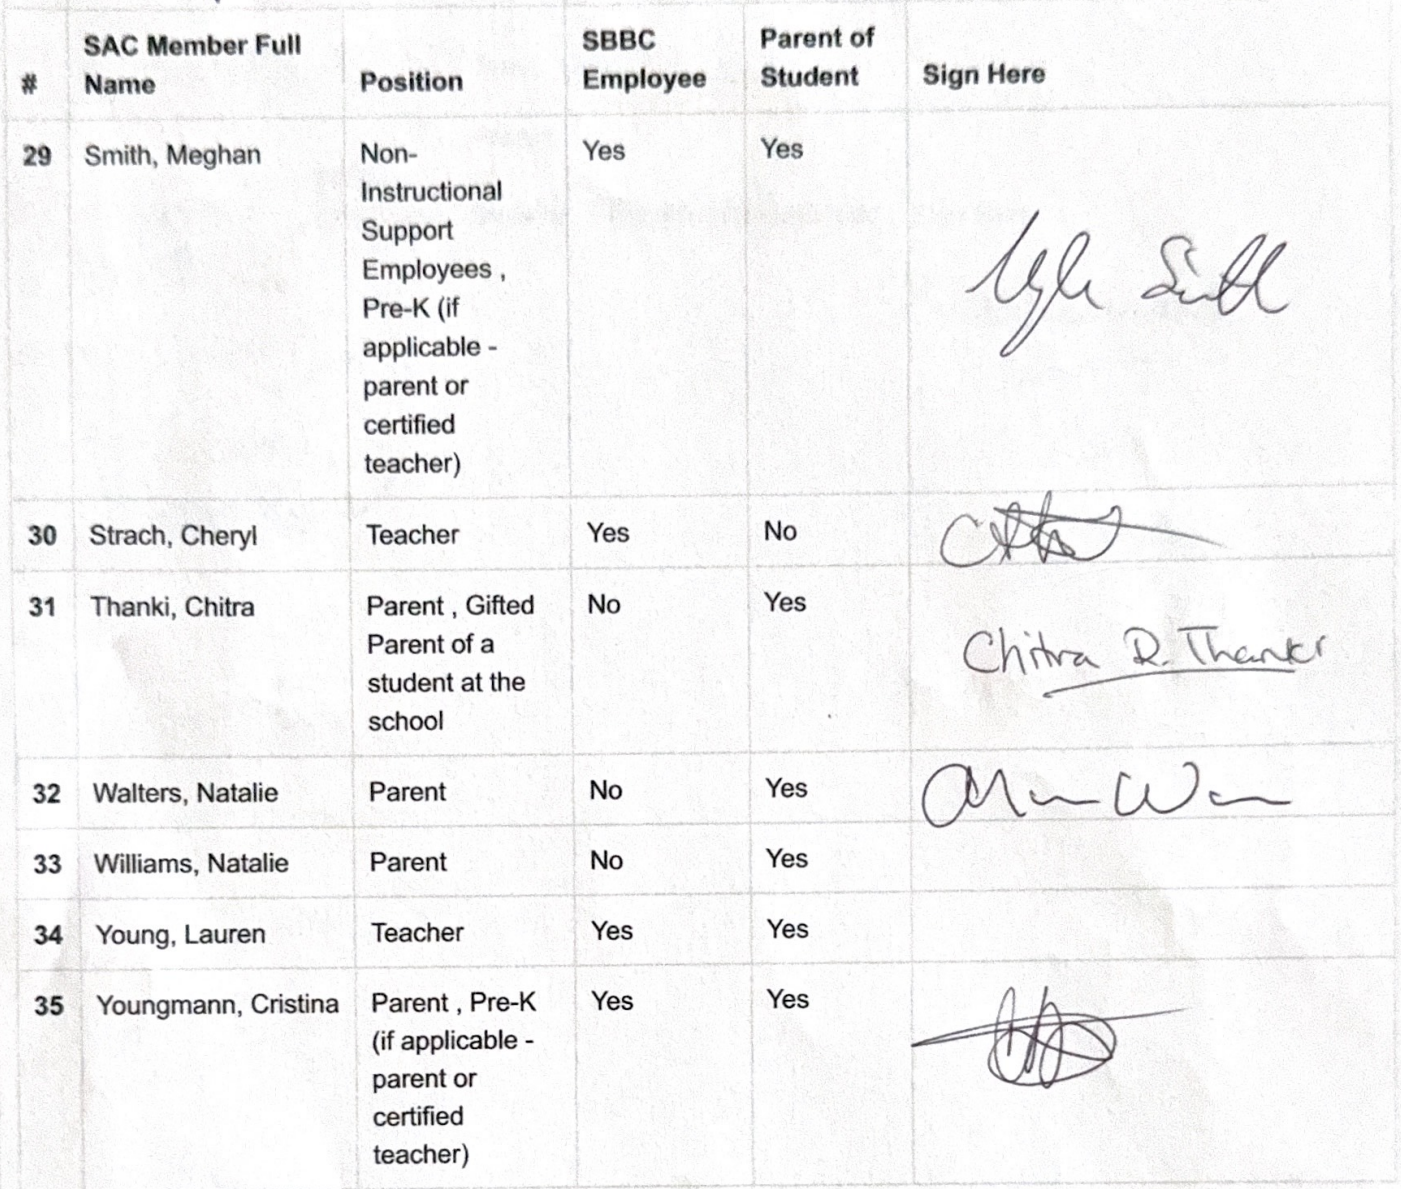 # SAC Member Full Name Position SBBC Employee Parent of Student Sign Here
29 Smith, Meghan Non- Yes Yes
Instructional
Support
Employees ,
Pre-K (if
applicable -
parent or
certified
teacher)
30 Strach, Cheryl Teacher Yes No
31 Thanki, Chitra Parent , Gifted No Yes
Parent of a
student at the
school
Chitra R. Thanki
32 Walters, Natalie Parent No Yes
33 Williams, Natalie Parent No Yes
34 Young, Lauren Teacher Yes Yes
35 Youngmann, Cristina Parent , Pre-K Yes Yes
(if applicable -
parent or
certified
teacher)